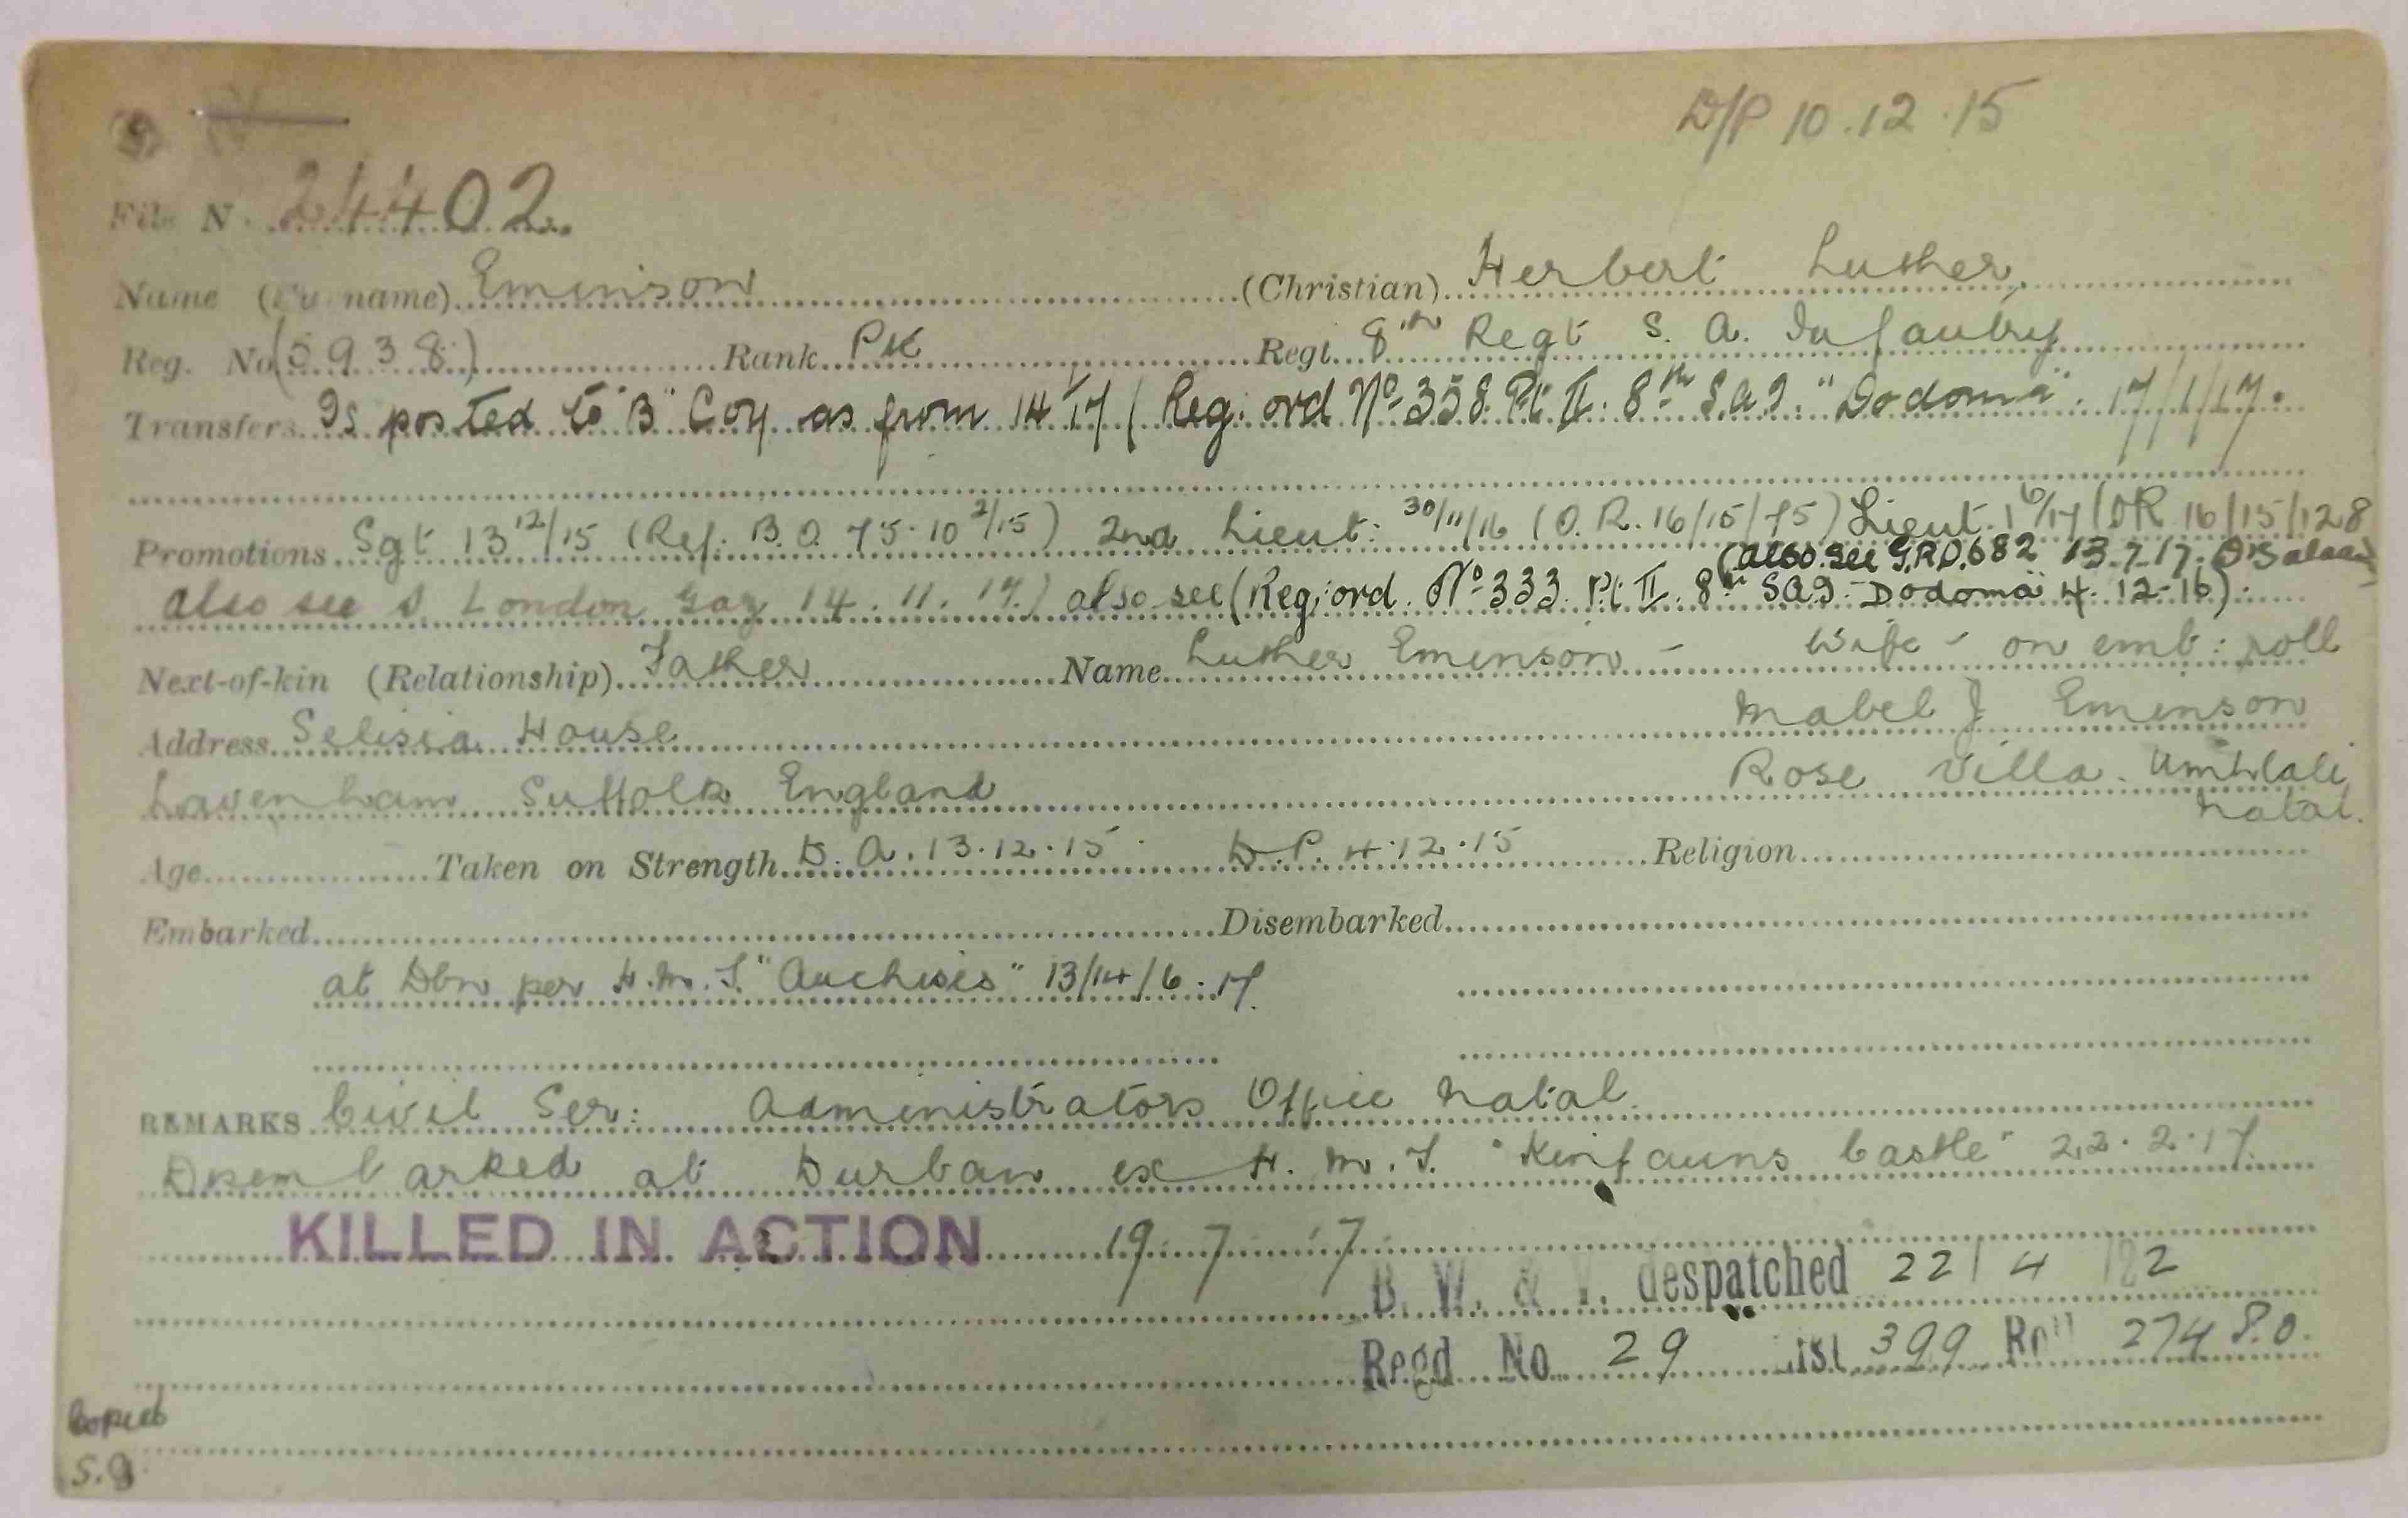 D/P 10.12.15
File N 24402.
Name (Surname) Eminson (Christian) Herbert Luther,
Reg. No (5938) Rank Pte Regt. 8th Regt S. A. Infantry
Transfers. Is posted to "B" Coy as from 14/1/17 (Reg: ord No 358 Pt II. 8th S.A.I. "Dodoma" 17/1/17.
Promotions Sgt 13 12/15 (Ref. B.O. 75. 10 2/15) 2nd Lieut: 30/11/16 (O.R. 16/15/75) Lieut. 1 6/17 (OR 16/15/128
(also see G.R.O. 682 13.7.17. D'Salaam)
also see London Gaz 14.11.17.) also see (Reg: ord. No 333 Pt II. 8th SAI Dodoma 4.12-16).
Next-of-kin (Relationship) Father Name Luther Eminson - Wife - on emb: roll
Address Selisia House Mabel J Eminson
Lavenham Suffolk England Rose Villa. Umhlali
Natal.
Age Taken on Strength D.A. 13.12.15 D.P. 4.12.15 Religion
Embarked Disembarked
at Dbn per H.M.T. "Anchises" 13/14/6.17.
REMARKS Civil Ser: Administrators Office Natal.
Disembarked at Durban ex H.M.T. "Kinfauns Castle" 22.2.17.
KILLED IN ACTION 19 7 17
B. W. & V. despatched 22/4/22
Regd No 29 List 399 Roll 274 S.O.
Copied
S.G.